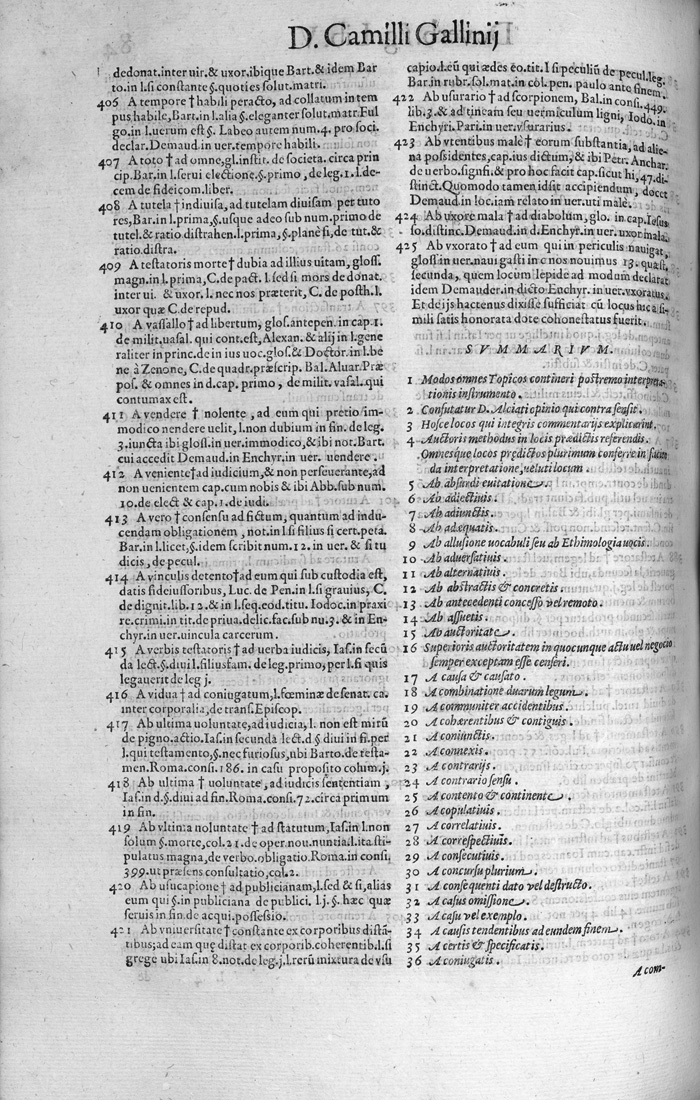 D. Camilli Gallinij
dedonat. inter uir. & uxor. ibique Bart. & idem Bar
to. in l. si constante §. quoties solut. matri.
406 A tempore † habili peracto, ad collatum in tem
pus habile, Bart. in l. alia §. eleganter solut. matr. Ful
go. in l. uerum est §. Labeo autem num. 4. pro soci.
declar. Demaud. in uer. tempore habili.
407 A toto † ad omne, gl. instit. de societa. circa prin
cip. Bar. in l. serui electione. §. primo, de leg. 1. l. de-
cem de fideicom. liber.
408 A tutela † indiuisa, ad tutelam diuisam per tuto
res, Bar, in l. prima, §. usque adeo sub num. primo de
tutel. & ratio distrahen. l. prima, §. planè si, de tut. &
ratio. distra.
409 A testatoris morte † dubia ad illius uitam, gloss.
magn. in l. prima, C. de pact. l. sed si mors de donat.
inter ui. & uxor. l. nec nos præterit, C. de posth. l.
uxor quæ C. de repud.
410 A vasallo † ad libertum, glos. antepen. in cap. 1.
de milit. uasal. qui cont. est, Alexan. & alij in l. gene
raliter in princ. de in ius uoc. glos. & Doctor. in l. be
ne à Zenone, C. de quadr. præscrip. Bal. Aluar. Præ
pos. & omnes in d. cap. primo, de milit. vasal. qui
contumax est.
411 A vendere † nolente, ad eum qui pretio im-
modico uendere uelit, l. non dubium in fin. de leg.
3. iuncta ibi glos. in uer. immodico, & ibi not. Bart.
cui accedit Demaud. in Enchyr. in uer. uendere.
412 A veniente † ad iudicium, & non perseuerante, ad
non uenientem cap. cum nobis & ibi Abb. sub num.
10. de elect & cap. 1. de iudi.
413 A vero † consensu ad fictum, quantum ad indu-
cendam obligationem, not. in l. si filius si cert. peta.
Bar. in l. licet, §. idem scribit num. 12. in uer. & si tu
dicis, de pecul.
414 A vinculis detento † ad eum qui sub custodia est,
datis fideiussoribus, Luc. de Pen. in l. si grauius, C.
de dignit. lib. 12. & in l. seq. eod. titu. Iodoc. in praxi
re. crimi. in tit. de priua. delic. fac. sub nu. 3. & in En-
chyr. in uer. uincula carcerum.
415 A verbis testatoris † ad uerba iudicis, Ias. in secū
da lect. §. diui l. filiusfam. de leg. primo, per l. si quis
legauerit de leg j.
416 A vidua † ad coniugatum, l. fœminæ de senat. ca.
inter corporalia, de trans. Episcop.
417 Ab ultima uoluntate, ad iudicia, l. non est mirū
de pigno. actio. Ias. in secunda lect. d. § diui in fi. per
l. qui testamento, §. nec furiosus, ubi Barto. de testa-
men. Roma. cons. 186. in casu proposito colum. j.
418 Ab ultima † uoluntate, ad iudicis sententiam,
Ias. in d. §. diui ad fin. Roma. cons. 72. circa primum
in fin.
419 Ab vltima uoluntate † ad statutum, Ias. in l. non
solum §. morte, col. 21. de oper. nou. nuntia. l. ita sti-
pulatus magna, de verbo. obligatio. Roma. in cons.
399. ut præsens consultatio, col. 2.
420 Ab usucapione † ad publicianam, l. sed & si, alias
eum qui §. in publiciana de publici. l. j. §. hæc quæ
seruis in fin. de acqui. possessio.
421 Ab vniuersitate † constante ex corporibus distā-
tibus, ad eam que distat ex corporib. coherentib. l. si
grege ubi Ias. in 8. not. de leg. j. l. rerū mixtura de vsu
capio. l. eū qui ædes eo. tit. l si peculiū de pecul. leg.
Bar. in rubr. sol. mat. in col. pen. paulo ante finem.
422 Ab usurario † ad scorpionem, Bal. in cons. 449.
lib. 3. & ad tineam seu uermiculum ligni, Iodo. in
Enchyri. Pari. in uer. vsurarius.
423 Ab vtentibus malè † eorum substantia, ad alie-
na possidentes, cap. ius dictum, & ibi Petr. Anchar.
de uerbo. signifi. & pro hoc facit cap. sicut hi, 47. di-
stinct. Quomodo tamen id sit accipiendum, docet
Demaud. in loc. iam relato in uer. uti malè.
424 Ab uxore mala † ad diabolum, glo. in cap. Iesus
so. distinc. Demaud. in d. Enchyr. in uer. uxor mala.
425 Ab vxorato † ad eum qui in periculis nauigat,
glos. in uer. nauigasti in c nos nouimus 13. quæst.
secunda, quem locum lepide ad modum declarat
idem Demauder. in dicto Enchyr. in uer. vxoratus.
Et de ijs hactenus dixisse sufficiat cū locus iuca si-
mili satis honorata dote cohonestatus fuerit.
SVMMARIVM.
1 Modos omnes Topicos contineri postremo interpreta-
tionis instrumento.
2 Confutatur D. Alciati opinio qui contra sensit.
3 Hosce locos qui integris commentarijs explicarint.
4 Auctoris methodus in locis prædictis referendis.
Omnesque locos prędictos plurimum conferre in
da interpretatione, ueluti locum.
5 Ab absurdi euitatione.
6 Ab adiectiuis.
7 Ab adiunctis.
8 Ab adæquatis.
9 Ab allusione uocabuli seu ab Ethimologia uocis.
10 Ab aduersatiuis.
11 Ab alternatiuis.
12 Ab abstractis & concretis.
13 Ab antecedenti concesso vel remoto.
14 Ab assuetis.
15 Ab auctoritate.
16 Superioris auctoritatem in quocunque actu uel negocio
semper exceptam esse censeri.
17 A causa & causato.
18 A combinatione duarum legum.
19 A communiter accidentibus.
20 A cohærentibus & contiguis.
21 A coniunctis.
22 A connexis.
23 A contrarijs.
24 A contrario sensu.
25 A contento & continente.
26 A copulatiuis.
27 A correlatiuis.
28 A correspectiuis.
29 A consecutiuis.
30 A concursu plurium.
31 A consequenti dato vel destructo.
32 A casus omissione.
33 A casu vel exemplo.
34 A causis tendentibus ad eundem finem.
35 A certis & specificatis.
36 A coniugatis.
A com-